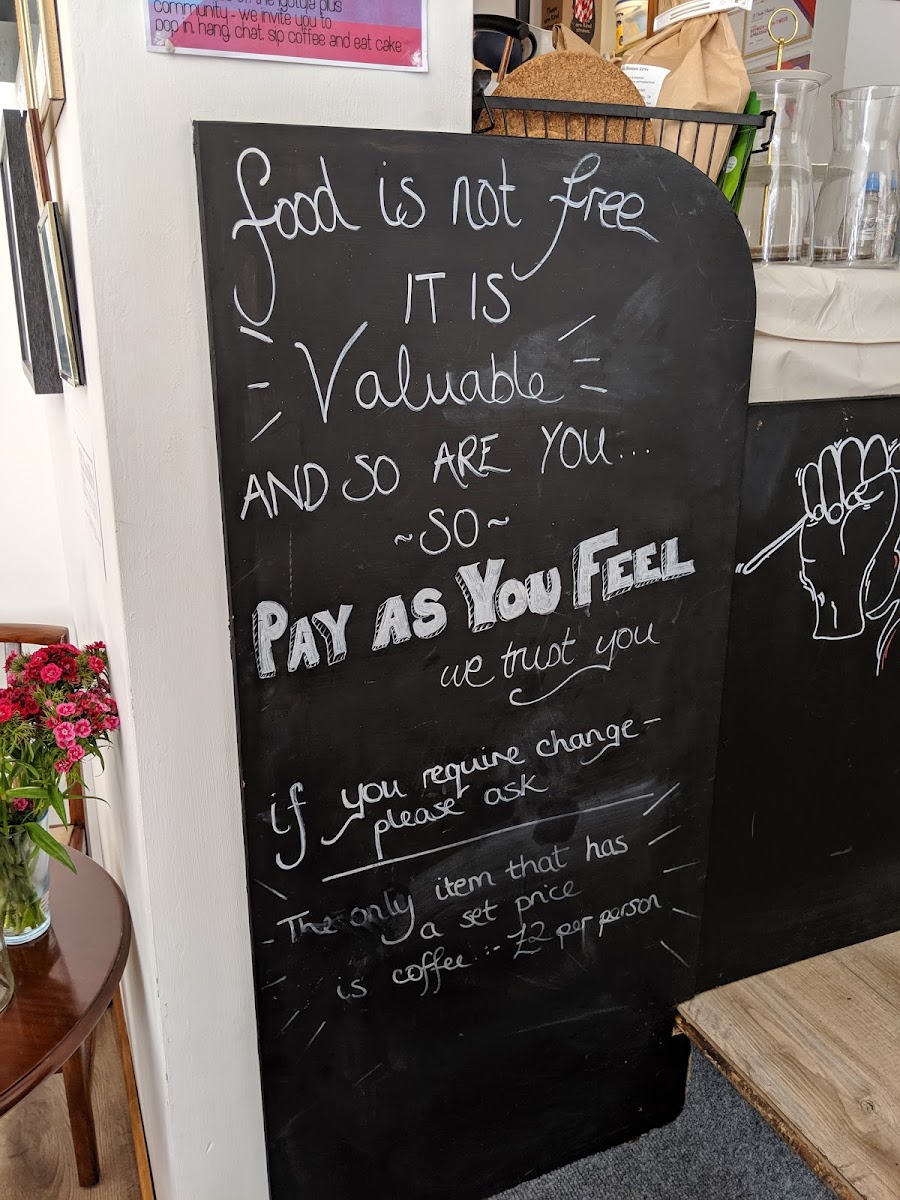 community - we invite you to
pop in, hang, chat, sip coffee and eat cake
food is not free
IT IS
Valuable
AND SO ARE YOU...
~SO~
PAY AS YOU FEEL
we trust you
if you require change -
please ask
The only item that has
a set price
is coffee... £2 per person